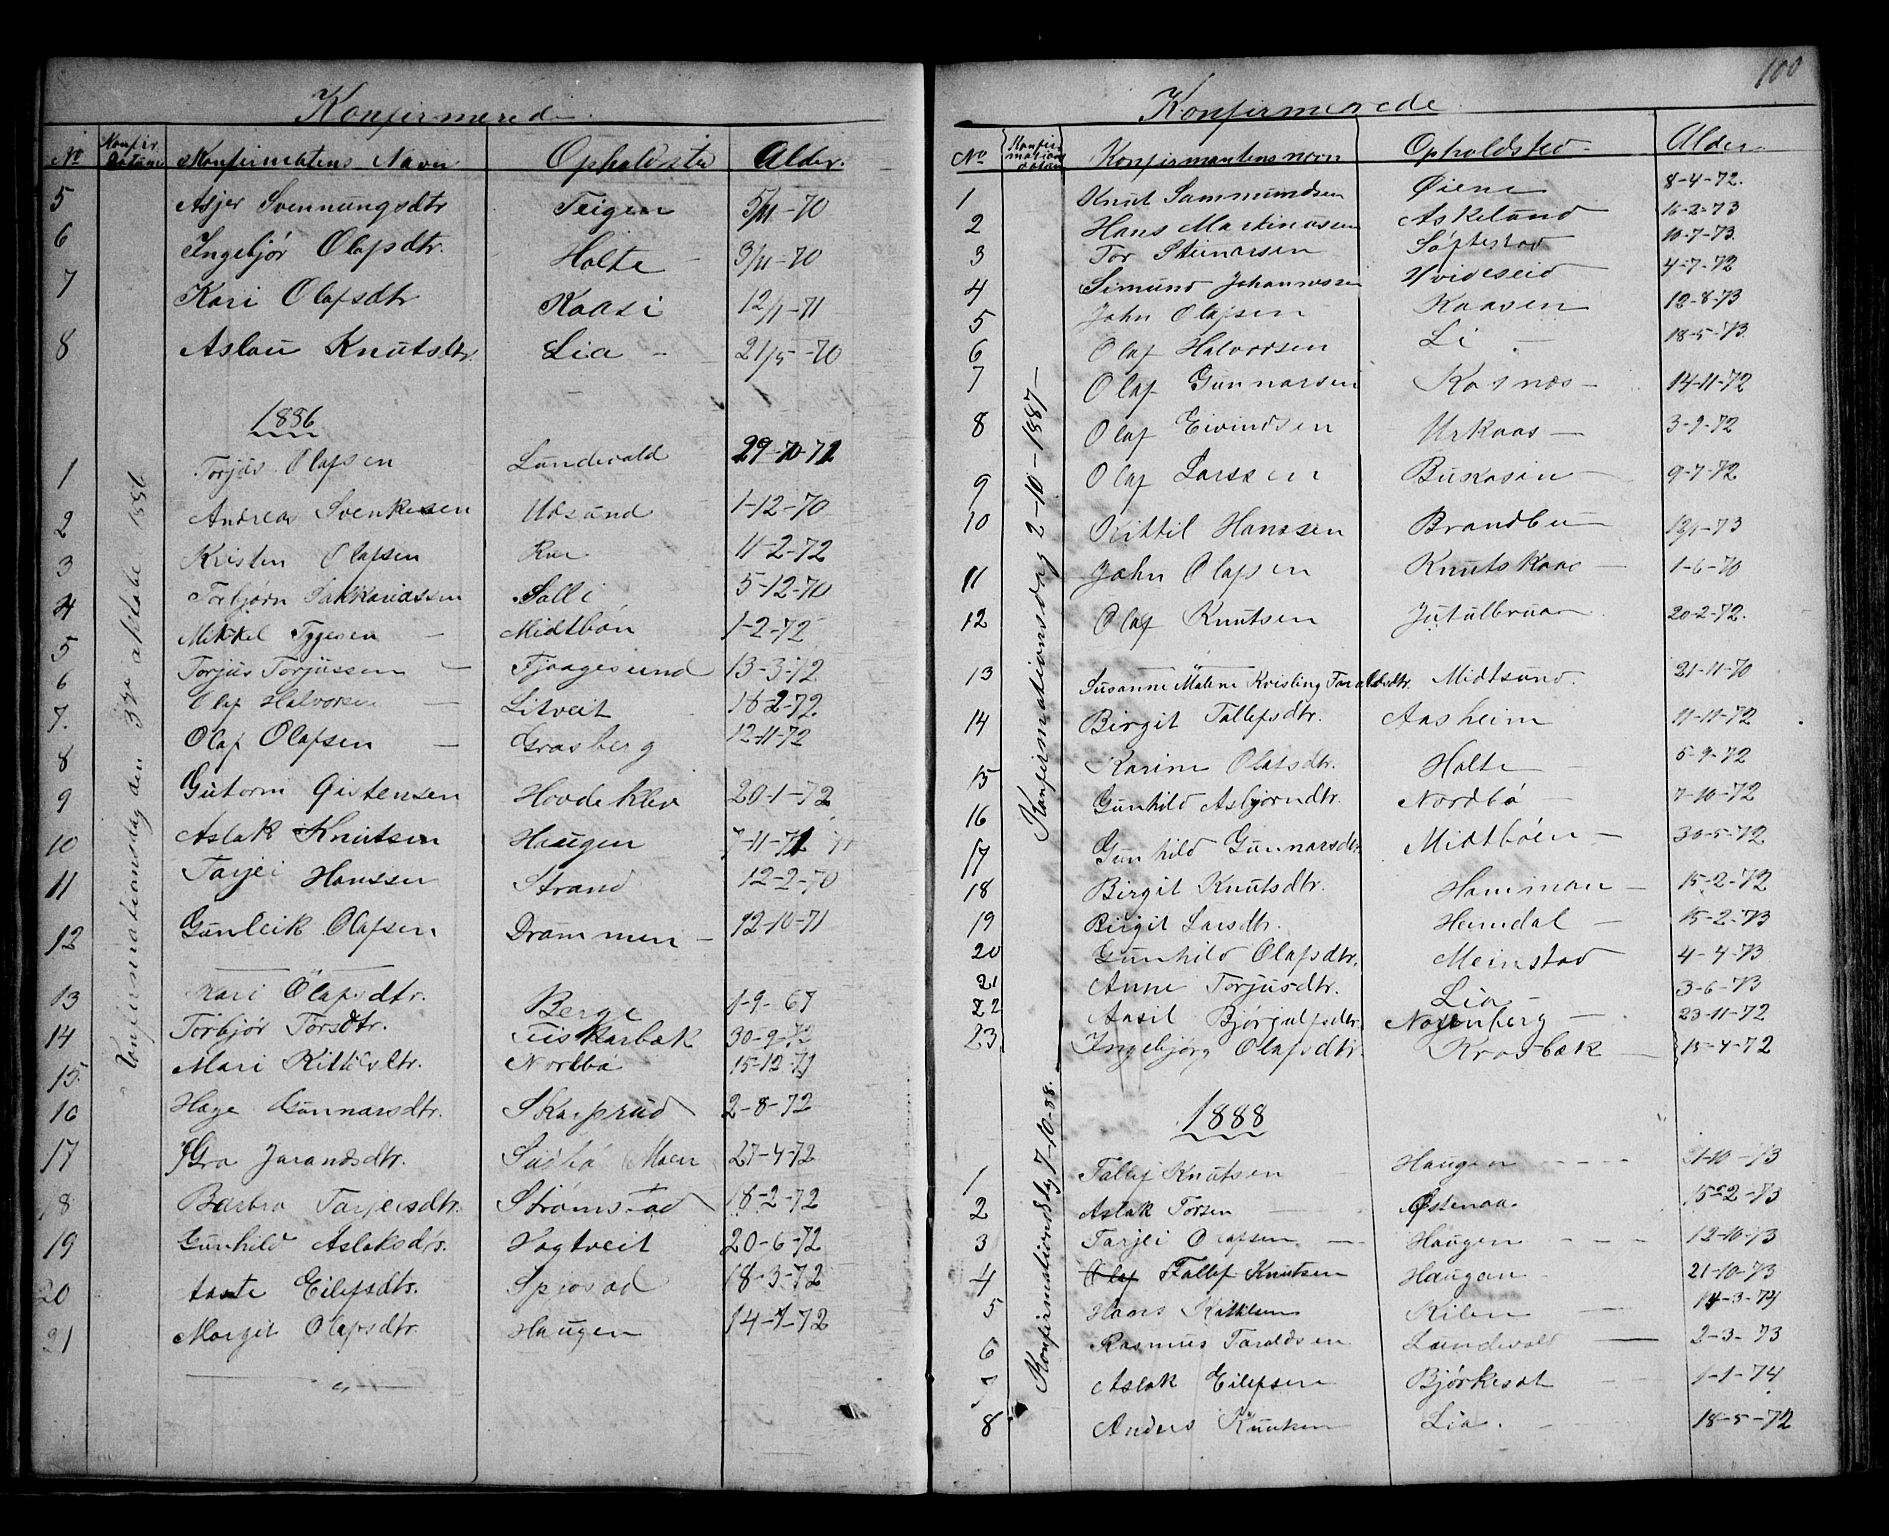 Konfirmerede
No Konfir. datum Konfirmatens Navn Opholdste Alder.
5 Asjer Svennungsdtr Teigen 5/11-70
6 Ingebjør Olafsdtr. Holte 3/11-70
7 Kari Olafsdtr Kaasi 12/1-71
8 Aslau Knutsdtr Lia - 21/5-70
1886
Konfirmationsdag den 3die oktobe 1886
1 Torjus Olafsen Lundevald 29-10-72
2 Andreas Svenkesen Udsund 1-12-70
3 Kristen Olafsen Rue 11-2-72
4 Torbjørn Sakkariassen Salli 5-12-70
5 Mikkel Tygesen - Midtbøn 1-2-72
6 Torjus Torjussen - Fjaagesund 13-3-72
7. Olaf Halvorsen - Litveit 16-2-72
8 Olaf Olafsen - Grasberg 12-11-72
9 Gutorm Gistensen Hovdeklev 20-1-72
10 Aslak Knutsen Haugen 7-11-71
11 Tarjei Hanssen Strand 12-2-70
12 Gunleik Olafsen Drammen - 12-10-71
13 Kari Olafsdtr. Berge 1-9-67
14 Torbjør Torsdtr. Fiskarbæk 30-9-72
15 Mari Kittilsdtr. Nordbø 15-12-71
16 Hæge Gunnarsdtr. Skarprud 2-8-72
17 Gro Jarandsdtr. Sudbø Moen 27-4-72
18 Barbro Tarjeisdtr. Strømstad 18-2-72
19 Gunhild Aslaksdtr. Hogtveit 20-6-72
20 Aaste Eilefsdtr. Spjosod 18-3-72
21 Margit Olafsdtr. Haugen 14-7-72
100
Konfirmerede
No Konfirmations datum Konfirmantens navn Opholdsted - Alder
Konfirmationsdag 2-10-1887-
1 Knut Sammundsen Øiene 8-4-72.
2 Hans Martinussen Askeland 16-2-73
3 Tor Steinarsen Søftestad 10-7-73.
4 Simund Johannessen Hvideseid 4-7-72
5 John Olafsen Kaasen 12-8-73
6 Olaf Halvorsen Li - 18-5-73.
7 Olaf Gunnarsen Kosnæs - 14-11-72
8 Olaf Eivindsen Urkaas - 3-9-72
9 Olaf Larssen Bukasin - 9-7-72
10 Kittil Hanssen Brandbu - 12/1-73
11 John Olafsen Knutskaas - 1-6-70
12 Olaf Knutsen Jutulbruan 20-2-72.
13 Susanne Maline Kristine Taraldsdtr. Midtsund. 21-11-70
14 Birgit Tallefsdtr. Aasheim 11-11-72
15 Karine Olafsdtr. Holte - 5-9-72
16 Gunhild Asbjørndtr. Nordbø - 7-10-72
17 Gunhild Gunnarsdtr. Midtbøen - 30-5-72
18 Birgit Knutsdtr. Hamman - 15-2-72
19 Birgit Larsdtr. Heimdal - 15-2-73
20 Gunhild Olafsdtr. Meinstad 4-4-73
21 Anne Torjusdtr. Lia - 3-6-73
22 Aasil Bjørgulfsdtr Nossenberg - 23-11-72
23. Ingebjørg Olafsdtr. Krosbæk - 15-4-72
1888
Konfirmationsdag 7-10-88.
1 Tallef Knutsen Haugen - - - 1-10-73
2 Aslak Torsen - Østenaa. 15-2-73
3 Tarjei Olafsen - Haugen - - - 12-10-73
4 Olaf Tallef Knutsen Haugan - 21-10-73
5 Hans Kittilsen Kilen - 14-3-74
6 Rasmus Taraldsen Lundevald - 2-3-73
7 Aslak Eilefsen Bjørkesdt - 1-1-74
8 Anders Knutsen Lia. - 18-5-72